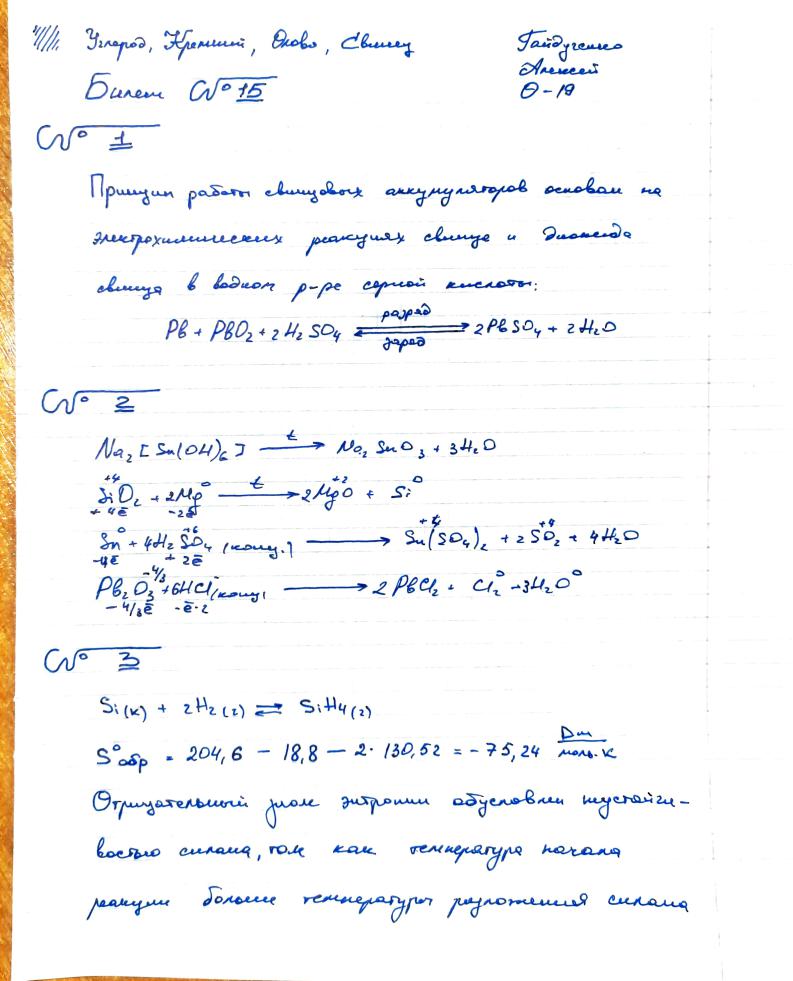 Углерод, Кремний, Олово, Свинец
Гайдученко
Алексей
О-19
Билет №15
№ 1
Принцип работы свинцовых аккумуляторов основан на
электрохимических реакциях свинца и диоксида
свинца в водном р-ре серной кислоты:
Pb + PbO₂ + 2H₂SO₄ ⇌ 2PbSO₄ + 2H₂O
разряд
заряд
№ 2
Na₂[Sn(OH)₆] —t→ Na₂SnO₃ + 3H₂O
+4 0 +2 0
SiO₂ + 2Mg —t→ 2MgO + Si
+4ē -2ē
0 +6 +4 +4
Sn + 4H₂SO₄ (конц.) ⟶ Sn(SO₄)₂ + 2SO₂ + 4H₂O
-4ē +2ē
-4/3 - 0 0
Pb₂O₃ + 6HCl (конц) ⟶ 2PbCl₂ + Cl₂ + 3H₂O
-4/3ē -ē·2
№ 3
Si(к) + 2H₂(г) ⇌ SiH₄(г)
S°обр = 204,6 - 18,8 - 2·130,52 = -75,24 Дж/моль·К
Отрицательный знак энтропии обусловлен неустойчи-
востью силана, так как температура начала
реакции больше температуры разложения силана